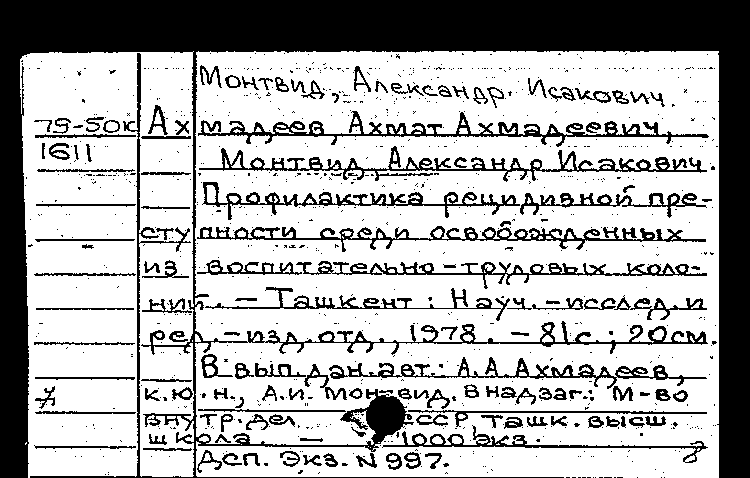 Монтвид, Александр. Исакович.
79-50к Ахмадеев, Ахмат Ахмадеевич,
1611 Монтвид, Александр Исакович.
Профилактика рецидивной пре-
ступности среди освобожденных
из воспитательно-трудовых коло-
ний. - Ташкент : Науч.-исслед. и
ред.-изд. отд., 1978. - 81с.; 20см.
В вып. дан. авт.: А.А. Ахмадеев,
7 к.ю.н., А.И. Монтвид. В надзаг.: М-во
внутр. дел СССР, Ташк. высш.
школа. - 1000 экз.
Дсп. Экз. N 997. 8